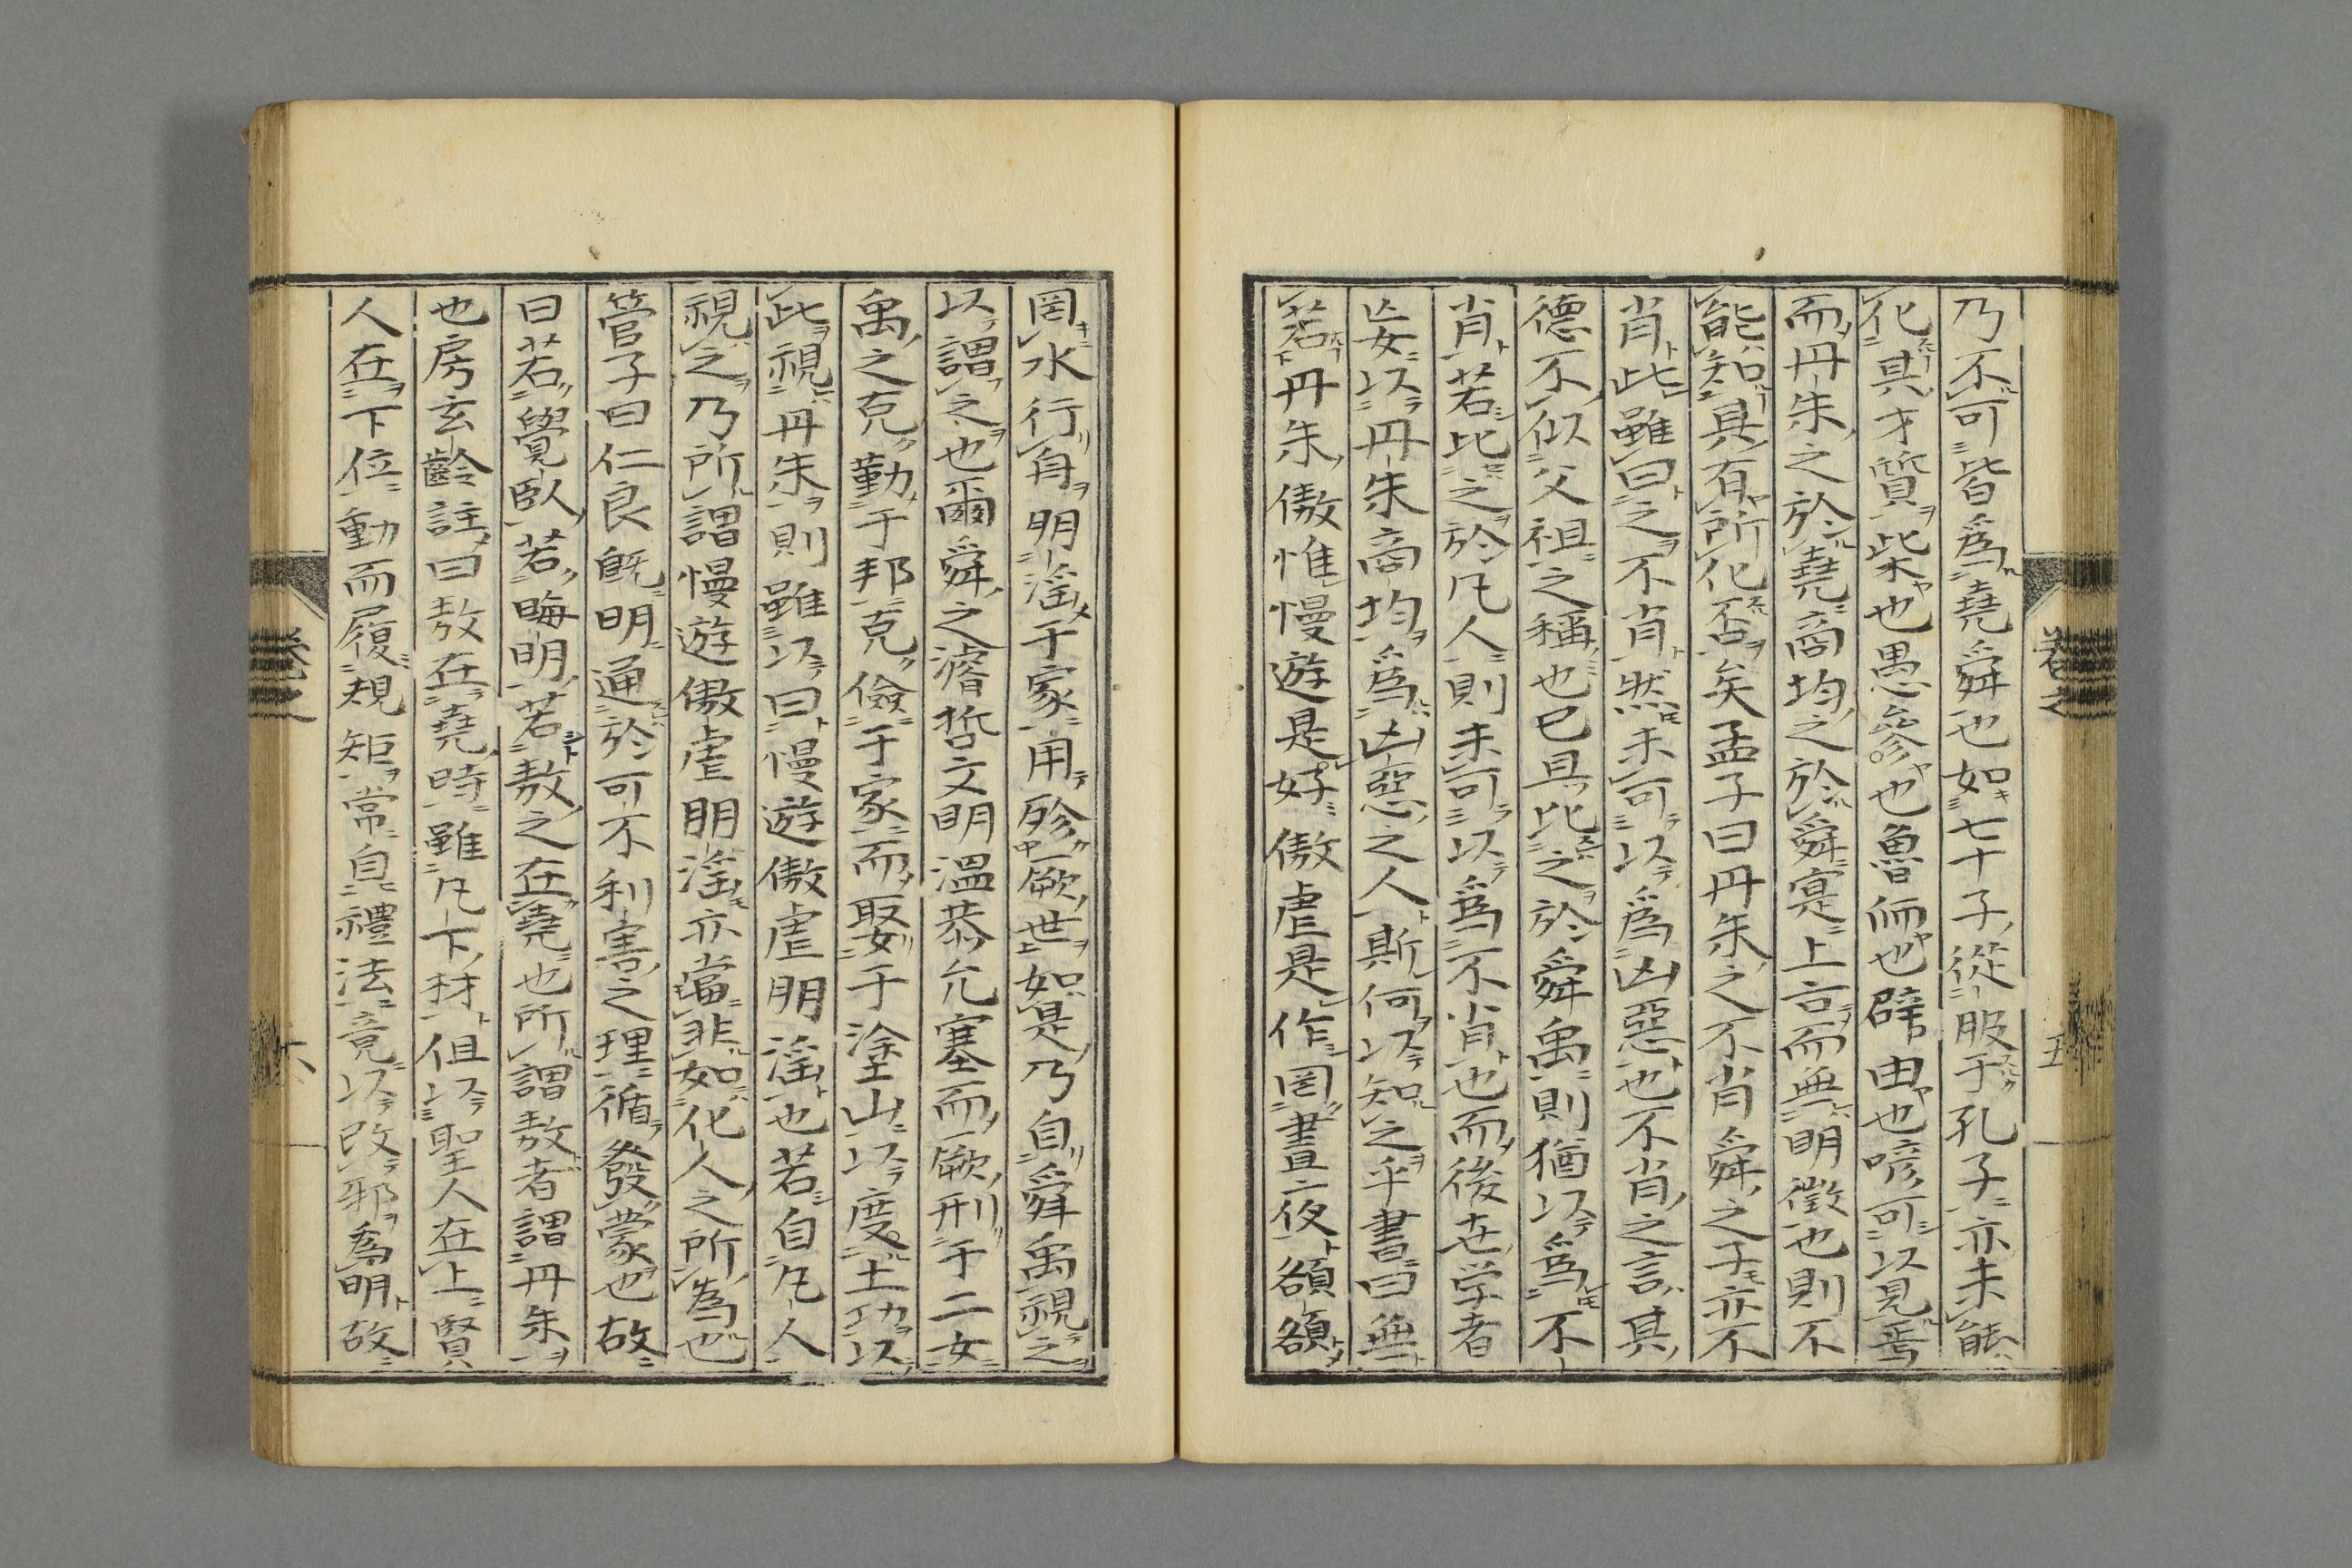 乃不可皆爲堯舜也如七十子從服于孔子亦未能
化其才質柴也愚參也魯師也辟由也喭可以見焉
而丹朱之於堯商均之於舜寔上言而無明徵也則不
能知其有所化否矣孟子曰丹朱之不肖舜之子亦不
肖此雖曰之不肖然未可以爲凶惡也不肖之言其
德不似父祖之稱也已具比之於舜禹則猶以爲不
肖若比之於凡人則未可以爲不肖也而後世学者
妄以丹朱商均爲凶惡之人斯何以知之乎書曰無
若丹朱傲惟慢遊是好傲虐是作罔晝夜頟頟
罔水行舟明淫于家用殄厥世如是乃自舜禹視之
以謂之也爾舜之濬哲文明溫恭允塞而厥刑于二女
禹之克勤于邦克儉于家而娶于塗山以度土功以
此視丹朱則雖以曰慢遊傲虐明淫也若自凡人
視之乃所謂慢遊傲虐明淫亦當非如化人之所為也
管子曰仁良既明通於可不利害之理循發蒙也故
曰若覺臥若晦明若敖之在堯也所謂敖者謂丹朱
也房玄齡註曰敖在堯時雖凡下材但以聖人在上賢
人在下位動而履規矩常自禮法竟以改邪為明故
卷之
五
卷之
六